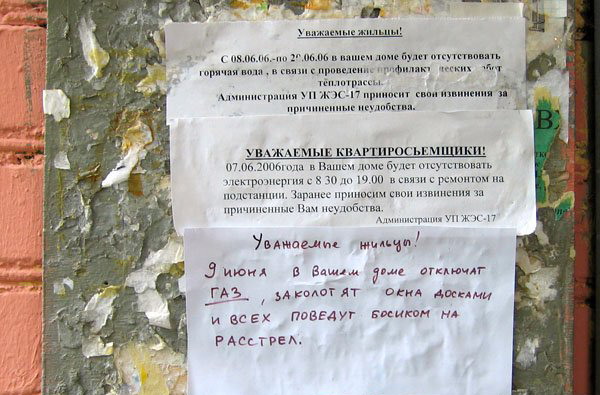 Уважаемые жильцы!
С 08.06.06.-по 2 .06.06 в вашем доме будет отсутствовать
горячая вода , в связи с проведение профилактических работ
теплотрассы.
Администрация УП ЖЭС-17 приносит свои извинения за
причиненные неудобства.
УВАЖАЕМЫЕ КВАРТИРОСЬЕМЩИКИ!
07.06.2006года в Вашем доме будет отсутствовать
электроэнергия с 8 30 до 19.00 в связи с ремонтом на
подстанции. Заранее приносим свои извинения за
причиненные Вам неудобства.
Администрация УП ЖЭС-17
Уважаемые жильцы!
9 июня в Вашем доме отключат
ГАЗ , заколотят окна досками
и всех поведут босиком на
расстрел.
В